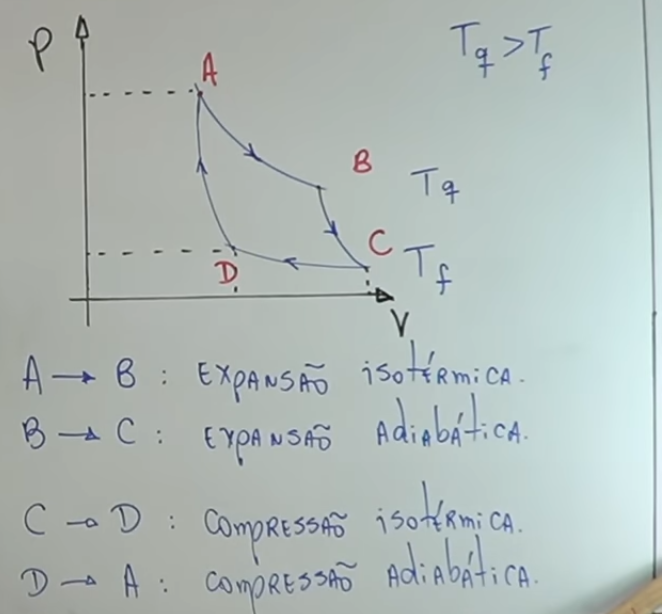 P
Tq > Tf
A
B
Tq
C
Tf
D
V
A → B : EXPANSÃO isotéRmiCA.
B → C : EXPANSÃO AdiAbÁtiCA.
C → D : COMPRESSÃO isotéRmiCA.
D → A : COMPRESSÃO AdiAbÁtiCA.